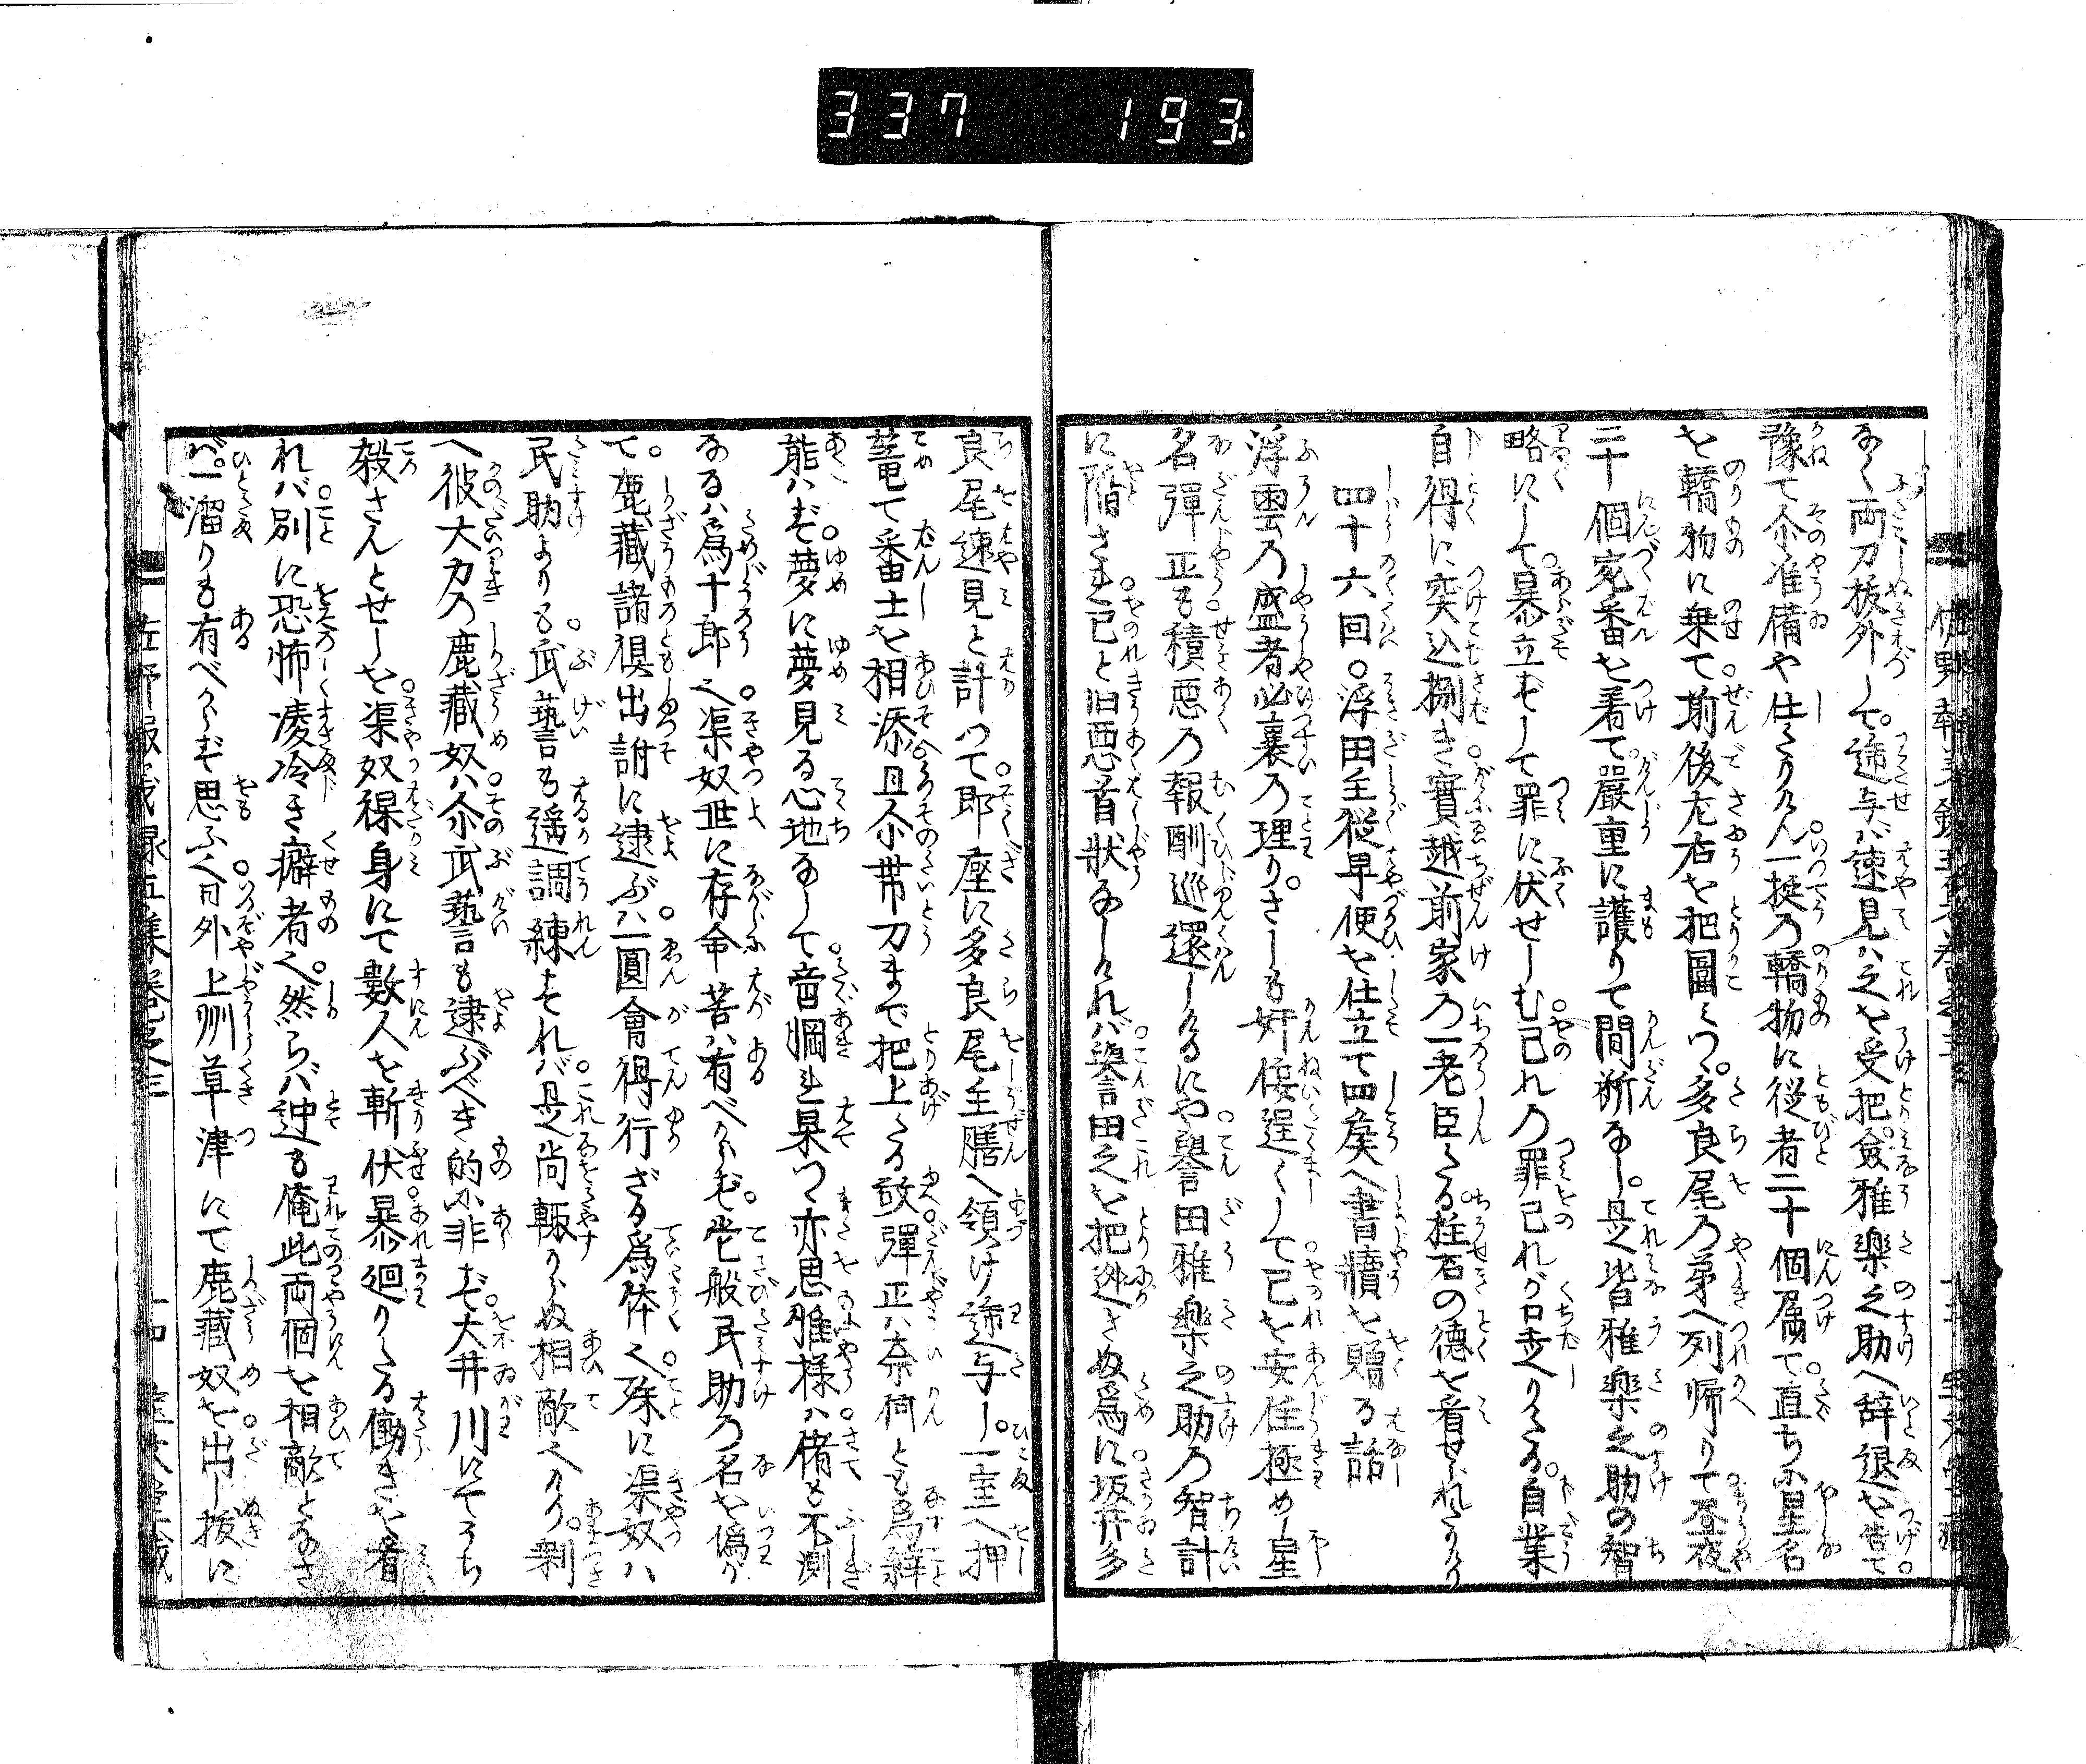 337 193
なく両刀抜外して。逓与バ速見ハ之を受把。僉雅樂之助へ辞退を告て
豫て尒准備や仕たりけん一挺乃轎物に従者二十個属て直ちに星名
を轎物に乗て前後左右を把圍ミつ。多良尾乃第へ列帰りて昼夜
二十個宛番を着て嚴重に護りて間断なし。是皆雅樂之助の智
略にして暴立ずして罪に伏せしむ己れの罪己れが口走りたる。自業
自得に突込捌き實越前家乃一老臣たる柱石の徳を着せバれたりけり
四十六回。浮田主従早便を仕立て四侯へ書牘を贈る話
浮雲乃盛者必衰乃理り。さしも奸侫逞くして己を安住極めし星
名彈正も積悪乃報酬巡還しけるにや譽田雅樂之助乃智計
に陥され己と旧悪首状なしけれバ譽田之を把迯さぬ爲に坂井多
良尾速見と計つて即座に多良尾主膳へ領け逓与し。一室へ押
篭て番士を相添且尒帯刀まで把上たる故彈正ハ奈何とも爲事
能ハず夢に夢見る心地なして音惘れ果つゝ亦思惟様ハ偖も不測
なるハ爲十郎也渠奴世に存命筈ハ有べからず。这般民助乃名を偽り
て。鹿藏諸倶出訴に逮ぶハ一圓會得行ざる爲体也殊に渠奴ハ
民助よりも武藝も遥調練すれバ是尚輙からぬ相敵也けり。剰
へ彼大力乃鹿藏奴ハ尒武藝も逮ぶべき的に非ず。大井川にてうち
殺さんとせしを渠奴裸身にて數人を斬伏暴廻りたる働きを看
れバ別に恐怖凄冷き癖者也。然らバ迚も俺此両個を相敵となさ
バ。一溜りも有べからず思ふく日外上州草津にて鹿藏奴を出し抜に